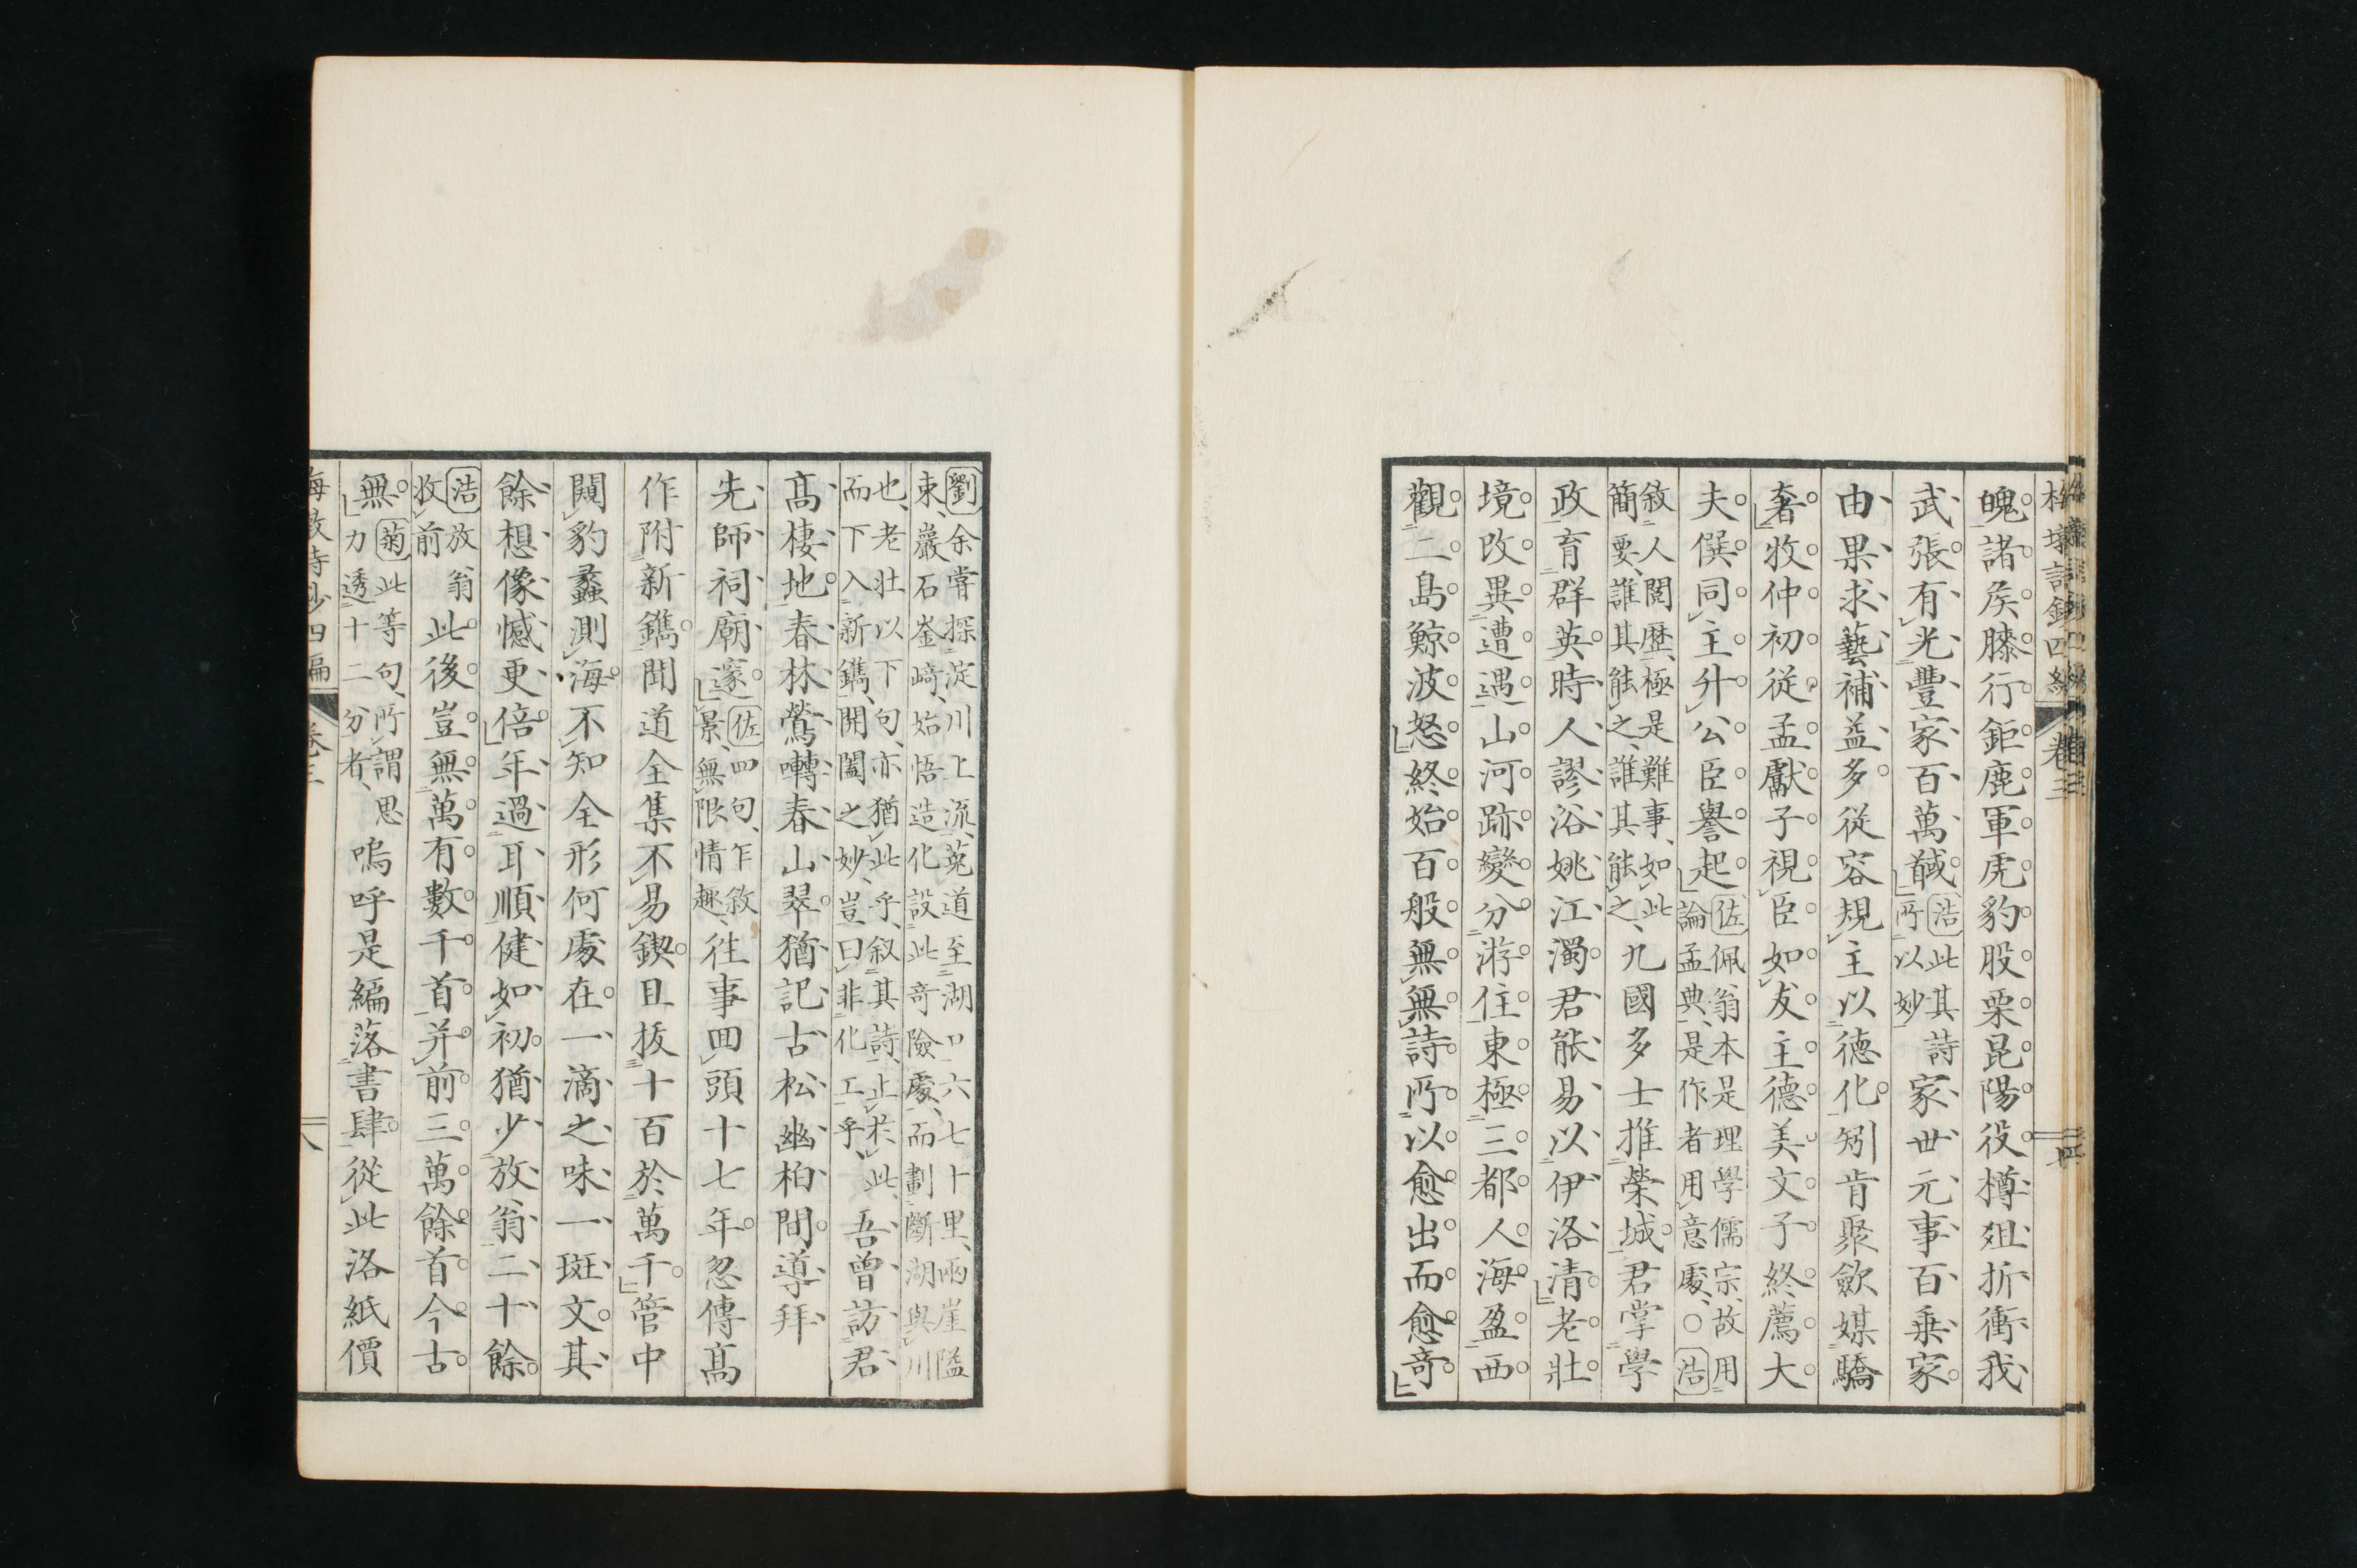 梅墩詩鈔四編 卷三
魄諸侯膝行鉅鹿軍虎豹股栗昆陽役樽俎折衝我
武張有光豐家百萬馘
浩此其詩
所以妙
家世元事百乘家
由果求藝補益多從容規主以德化矧肯聚斂媒驕
奢牧仲初從孟獻子視臣如友主德美文子終薦大
夫僎同主升公臣譽起
佐佩翁本是理學儒宗故用
論孟典是作者用意處○浩
敘人閱歷極是難事如此
簡要誰其能之誰其能之
九國多士推榮城君掌學
政育群英時人謬浴姚江濁君能易以伊洛清老壯
境改異遭遇山河跡變分游住東極三都人海盈西
觀二島鯨波怒終始百般無無詩所以愈出而愈奇
劉余嘗探淀川上流蒐道至湖口六七十里兩崖隘
束巖石崟﨑始悟造化設此奇險處而劃斷湖與川
也老壯以下句亦猶此乎叙其詩止於此
而下入新鐫開闔之妙豈曰非化工乎
吾曾訪君
高棲地春林鶯囀春山翠猶記古松幽柏間導拜
先師祠廟邃
佐四句乍敘
景無限情趣
往事回頭十七年忽傳高
作附新鐫聞道全集不易鍥且拔十百於萬千管中
闚豹蠡測海不知全形何處在一滴之味一斑文其
餘想像憾更倍年過耳順健如初猶少放翁二十餘
浩放翁
收前
此後豈無萬有數千首并前三萬餘首今古
無
菊此等句所謂思
力透十二分者
嗚呼是編落書肆從此洛紙價
海墩詩鈔四編 卷三 八